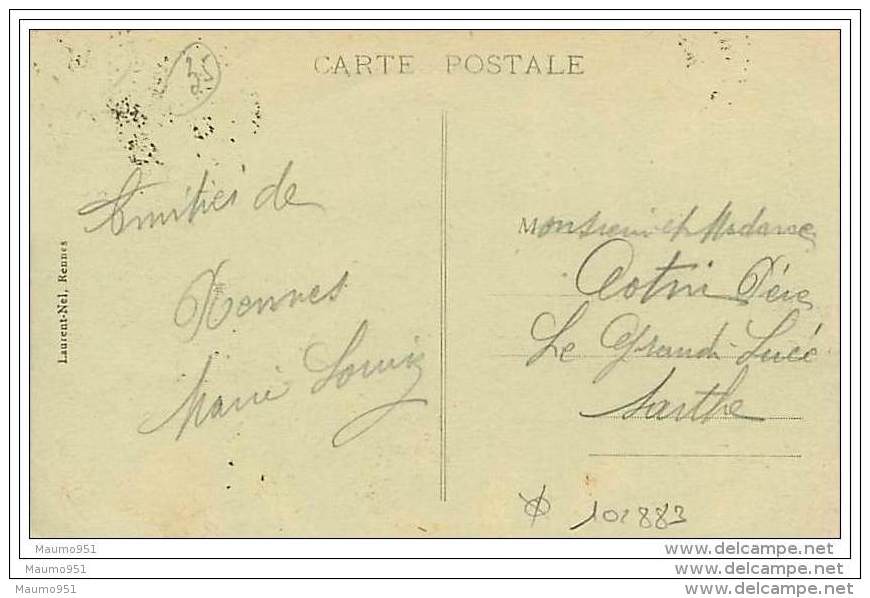 CARTE POSTALE
35
Amitiés de
Rennes
Marie Louise
Laurent-Nel, Rennes
Monsieur et Madame
Père
Le Grand-Lucé
Sarthe
102883
Maumo951
www.delcampe.net
Maumo951
www.delcampe.net
Maumo951
www.delcampe.net